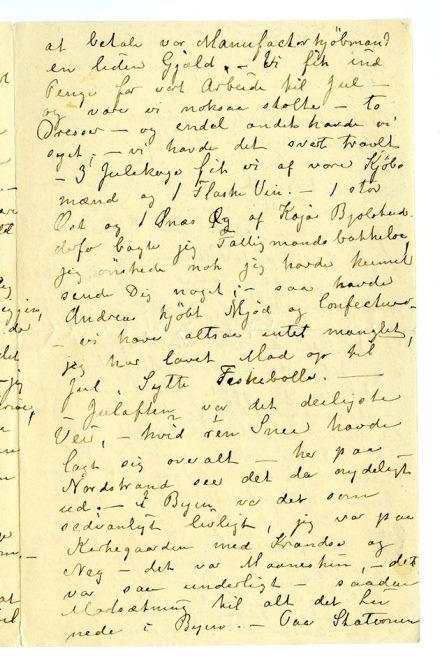 at betale vor Manufacturkjøbmand
en liden Gjæld. – Vi fik ind
Penge for vort Arbeide til Jul –
og vare vi noksaa stolte – to
Dresser – og endel andet havde vi
syet, – vi havde det svært travlt
– 3 Julekager fik vi af vore Kjøb
mænd og 1 Flaske Vin. – 1 stor
Ost og 1 af Kaja
derfor bagte jeg Fattigmandsbakkelse,
jeg ønskede nok jeg havde kunnet
sende Dig noget; – saa havde
Andreas kjøbt Mjød og Confecturer
– vi have altsaa intet manglet,
jeg har lavet Mad op til
Jul, Sylte Feskebolle. –
– Julaften var det deiligste
Veir, – hvid ren Snee havde
lagt sig overalt – her paa
Nordstrand saa det da nydeligt
ud. – I Byen var det som
sedvanligt livligt, jeg var paa
Kerkegaarden med og
– det var Maaneskin, – det
var saa underligt – saadan
Modsætning til alt det her
nede i Byen. – Paa